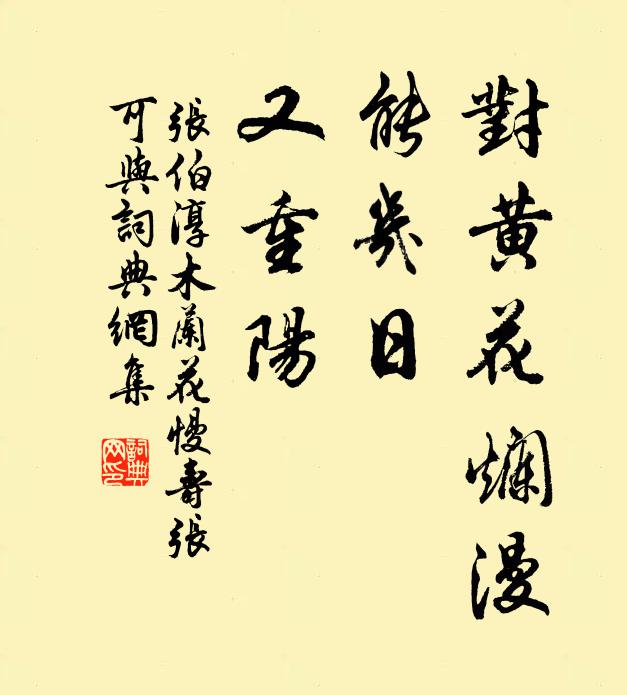 對黄花爛漫
能幾日
又重陽
張伯淳木蘭花慢壽張
可與詞典網集
詞典网印